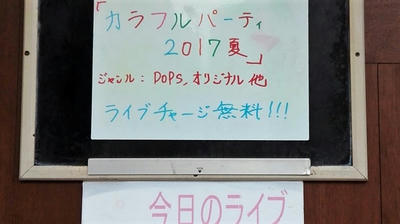 「カラフルパーティ
2017夏」
ジャンル：POPS,オリジナル他
ライブチャージ無料!!!
今日のライブ